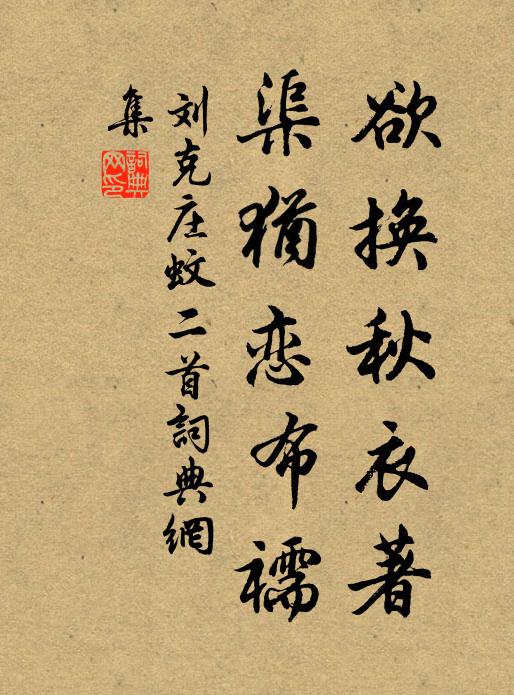 欲换秋衣著
渠犹恋布襦
刘克庄蚊二首詞典網
集
詞典
网印